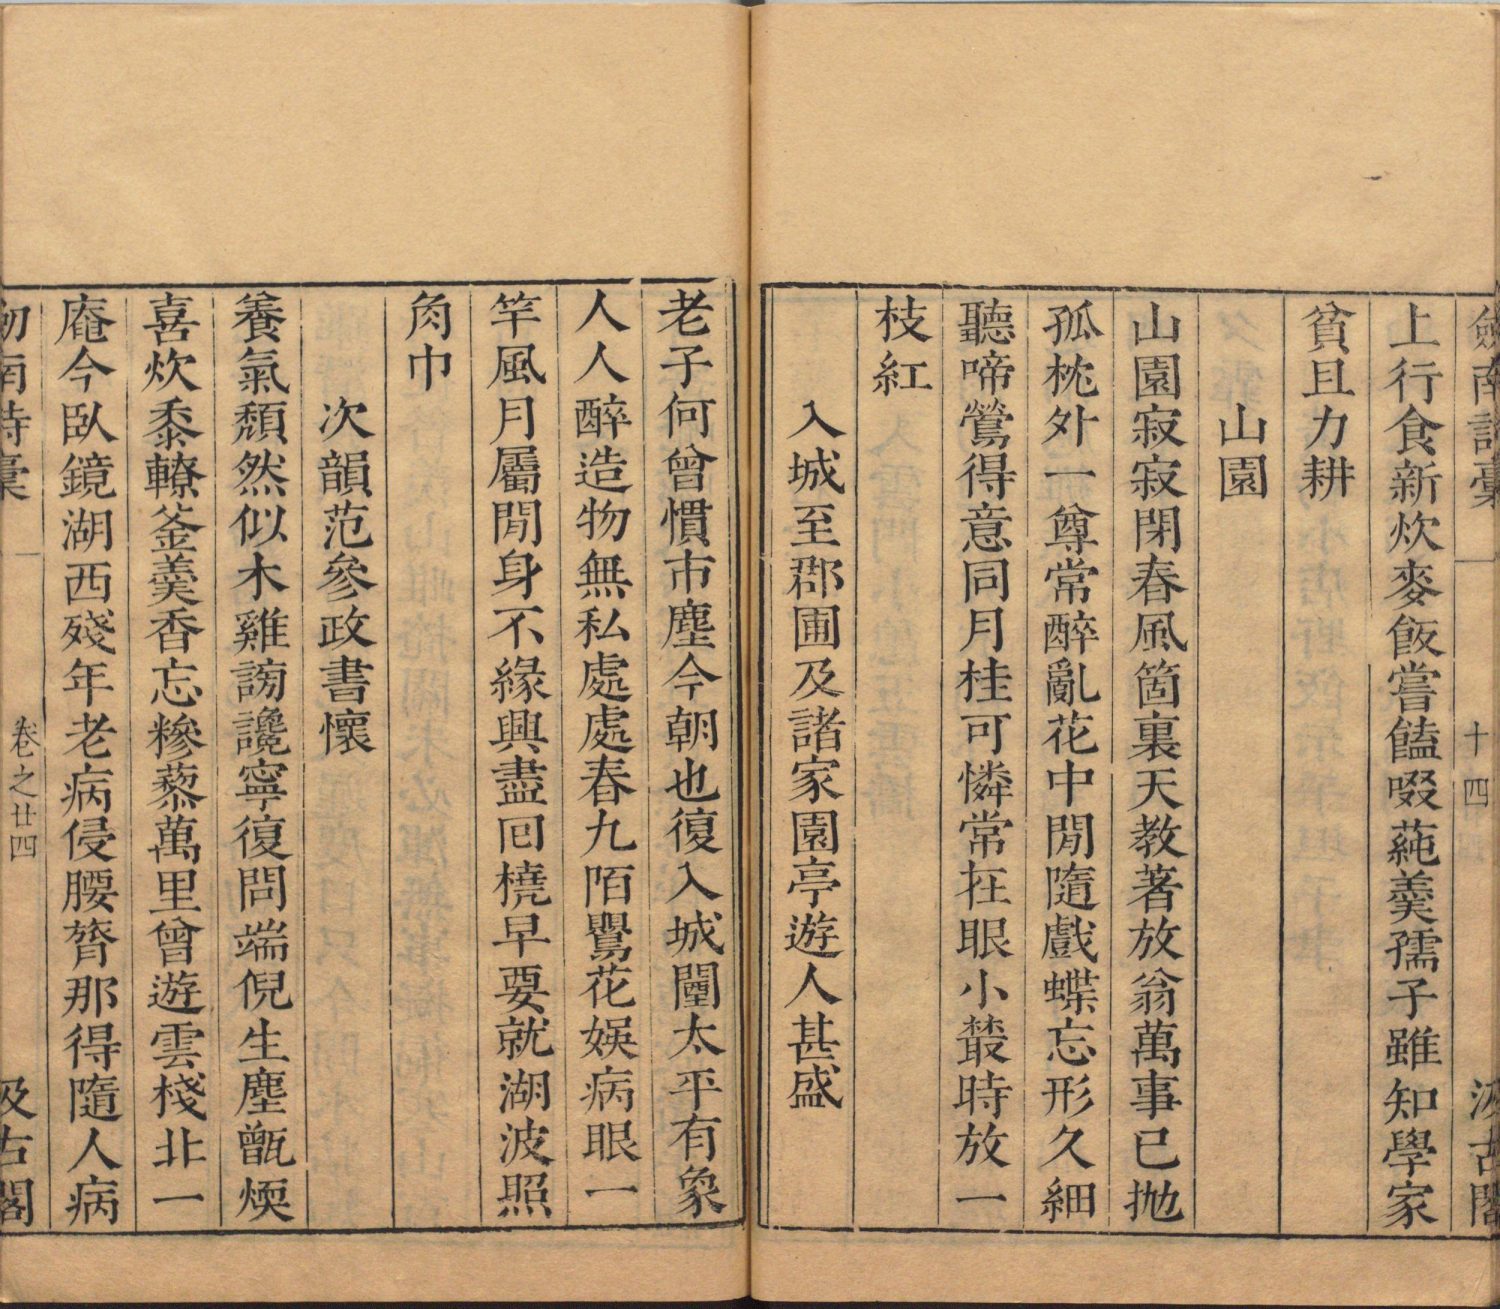 劍南詩稾 十四 汲古閣
上行食新炊麥飯嘗饁啜蒓羹孺子雖知學家
貧且力耕
山園
山園寂寂閉春風箇裏天教著放翁萬事已拋
孤枕外一尊常醉亂花中閒隨戲蝶忘形久細
聽啼鶯得意同月桂可憐常在眼小叢時放一
枝紅
入城至郡圃及諸家園亭遊人甚盛
老子何曾慣市塵今朝也復入城闉太平有象
人人醉造物無私處處春九陌鸎花娛病眼一
竿風月屬閒身不緣興盡囘橈早要就湖波照
角巾
次韻范參政書懷
養氣頹然似木雞謗讒寧復問端倪生塵甑煗
喜炊黍轑釜羹香忘糝藜萬里曾遊雲棧北一
庵今臥鏡湖西殘年老病侵腰膂那得隨人病
劍南詩稾 卷之廿四 汲古閣